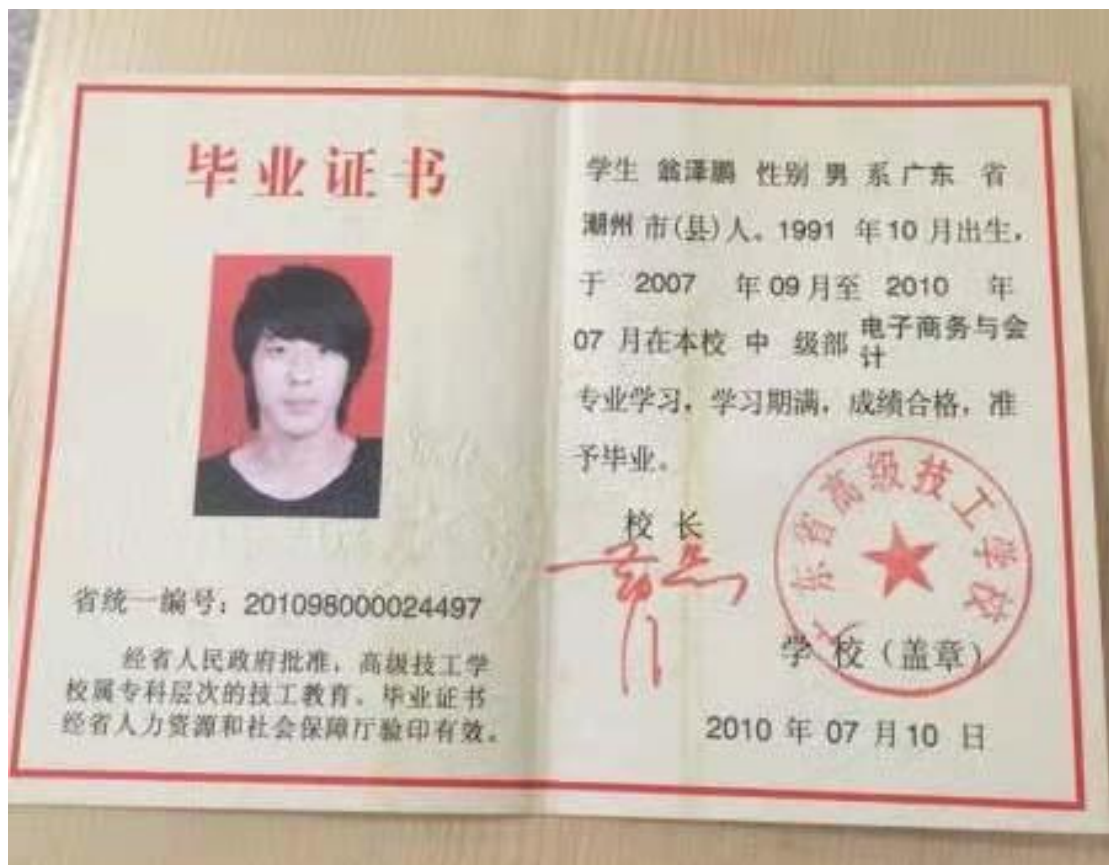 毕业证书
省统一编号：201098000024497
经省人民政府批准，高级技工学
校属专科层次的技工教育。毕业证书
经省人力资源和社会保障厅验印有效。
学生 翁泽鹏 性别 男 系 广东 省
潮州 市(县)人。1991 年10 月出生，
于 2007 年 09 月至 2010 年
07 月在本校 中 级部 电子商务与会
计
专业学习，学习期满，成绩合格，准
予毕业。
校长
广东省高级技工学校
学校（盖章）
2010 年 07 月 10 日